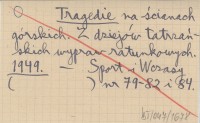 Tragedie na ścianach
górskich. Z dziejów tatrzań-
skich wypraw ratunkowych.
1949. – Sport i Wczasy
( ) nr 79-82 i 84.